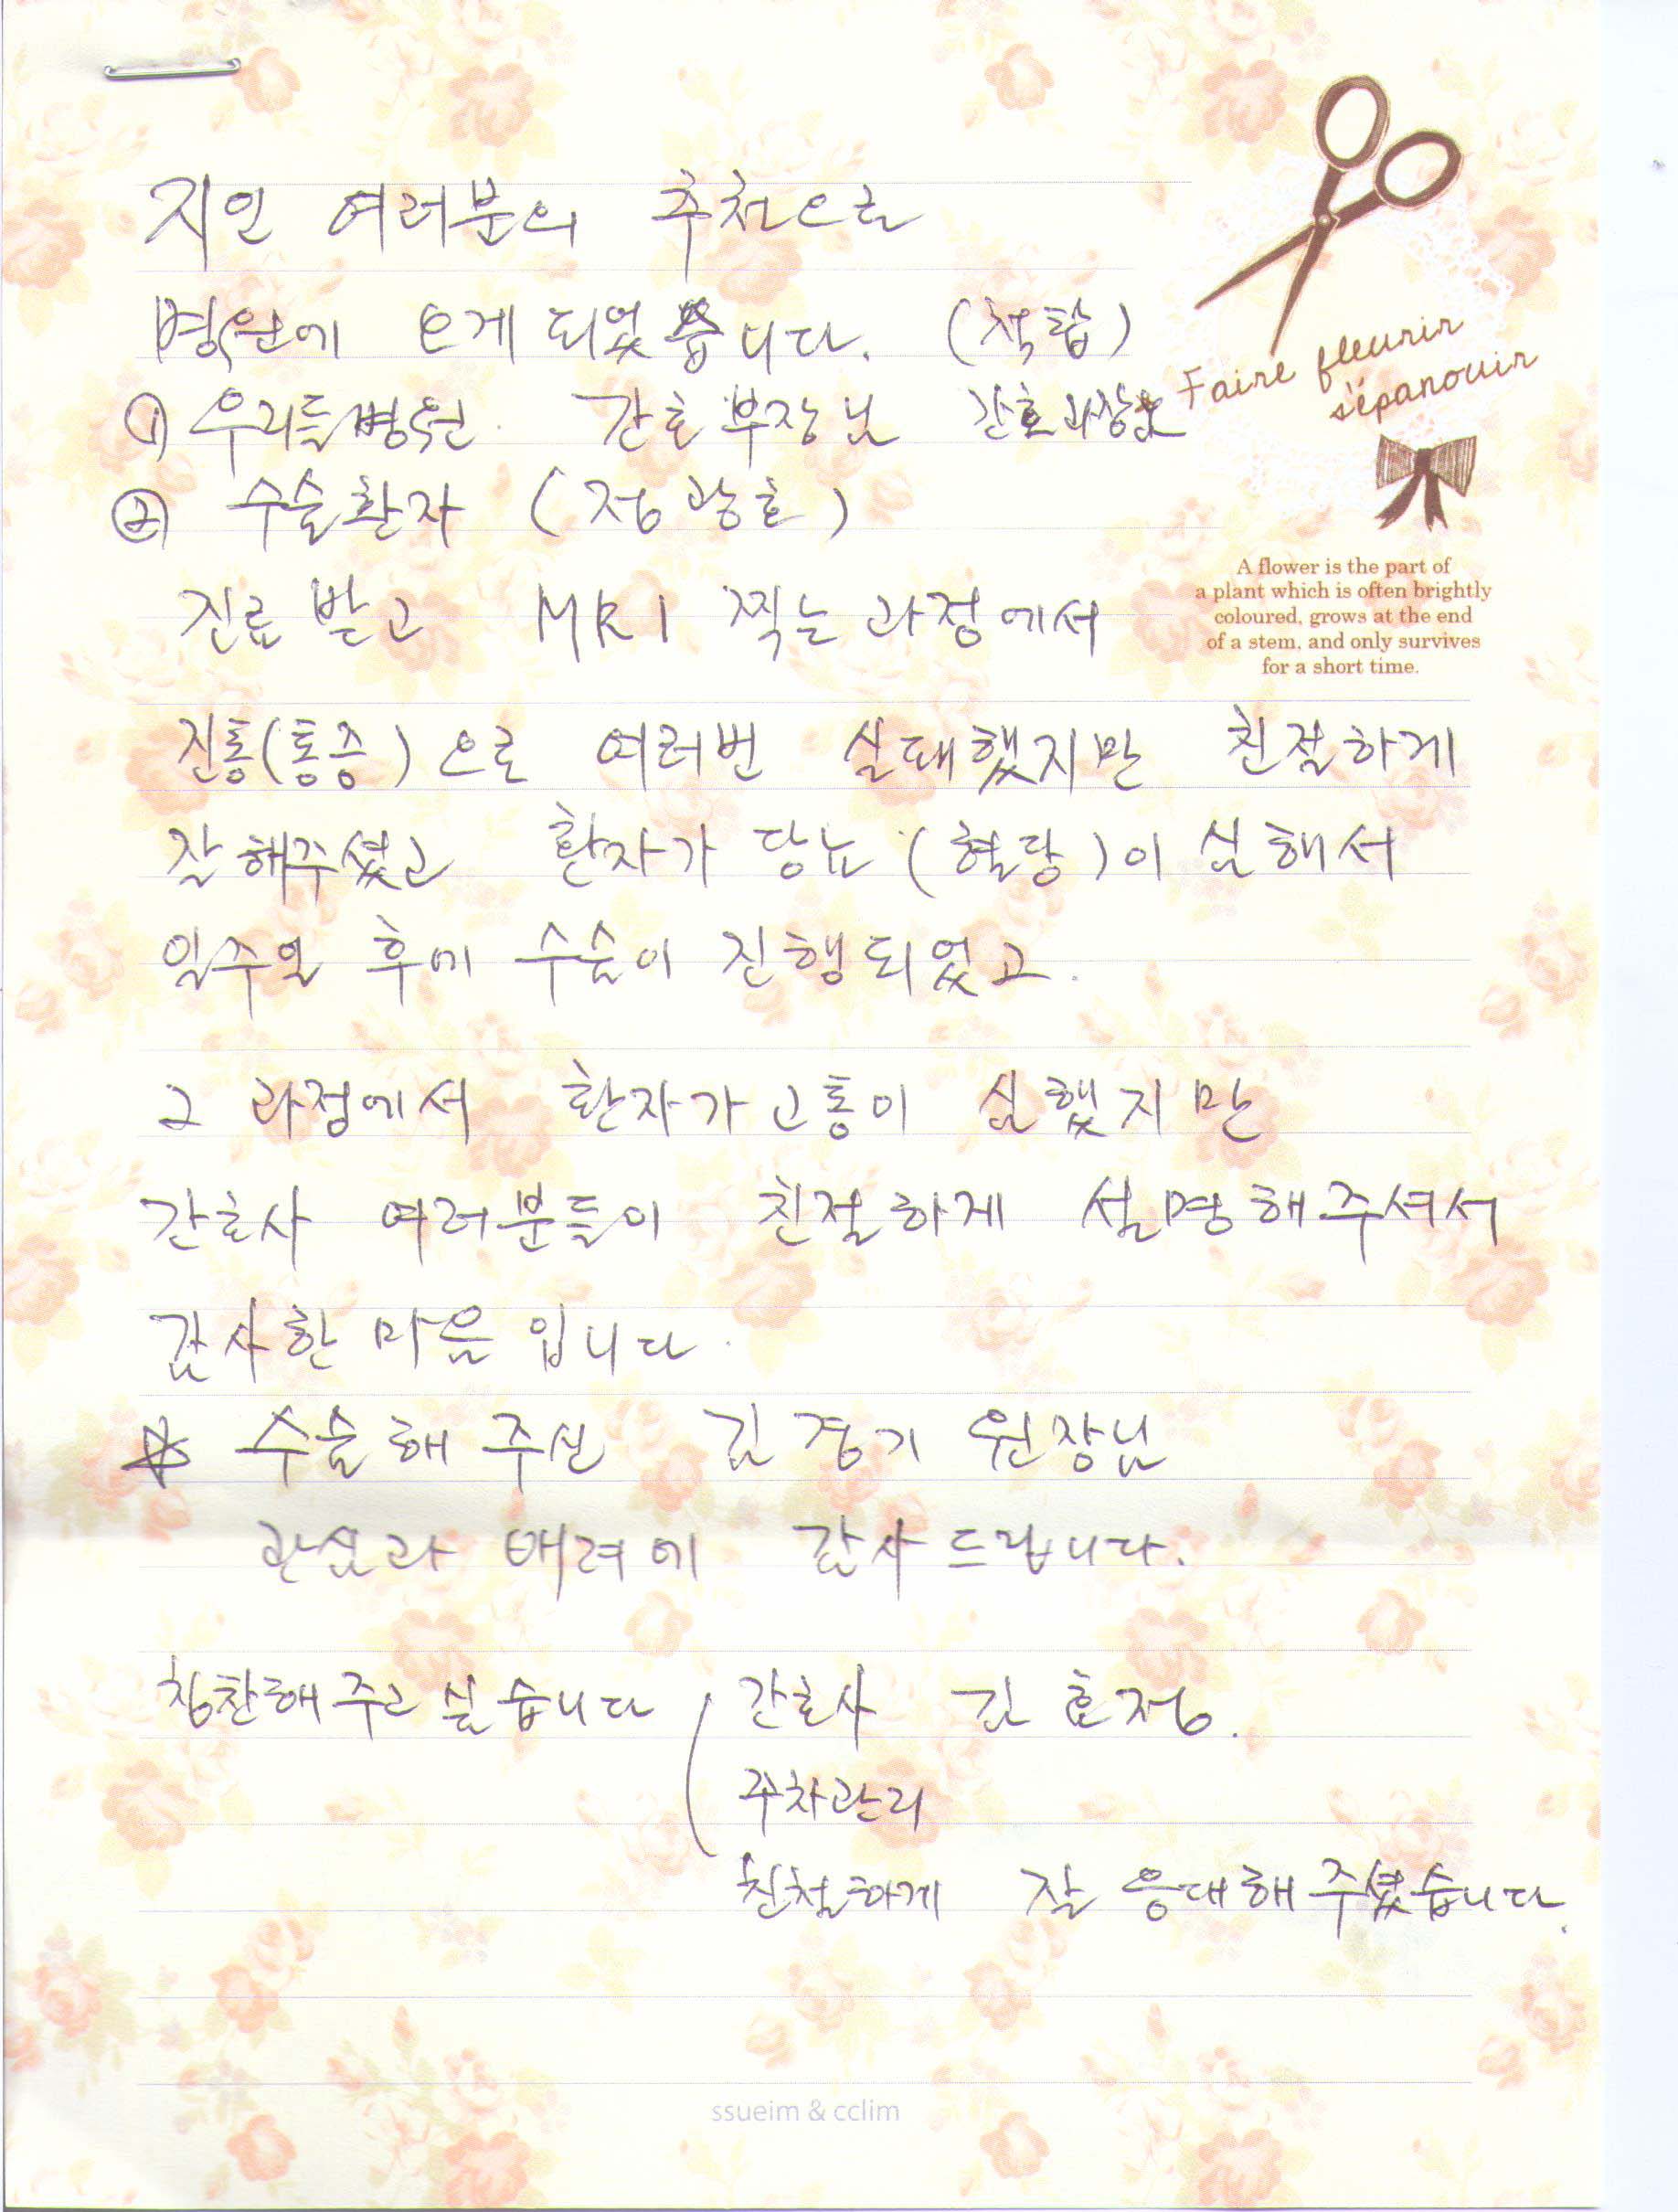 지인 여러분의 추천으로
병원에 오게 되었습니다. (척탑)
① 우리들병원. 간호부장님 간호과장님
② 수술환자 (정광호)
진료 받고 MRI 찍는 과정에서
진통(통증)으로 여러번 실패했지만 친절하게
잘해주셨고 환자가 당뇨 (혈당)이 심해서
일주일 후에 수술이 진행되었고.
그 과정에서 환자가 고통이 심했지만
간호사 여러분들이 친절하게 설명해주셔서
감사한 마음 입니다.
☆ 수술해 주신 김경기 원장님
관심과 배려에 감사드립니다.
칭찬해주고 싶습니다 ( 간호사 김효정.
주차관리
친철하게 잘 응대해 주셨습니다.
Faire fleurir
s'épanouir
A flower is the part of
a plant which is often brightly
coloured, grows at the end
of a stem, and only survives
for a short time.
ssueim & cclim